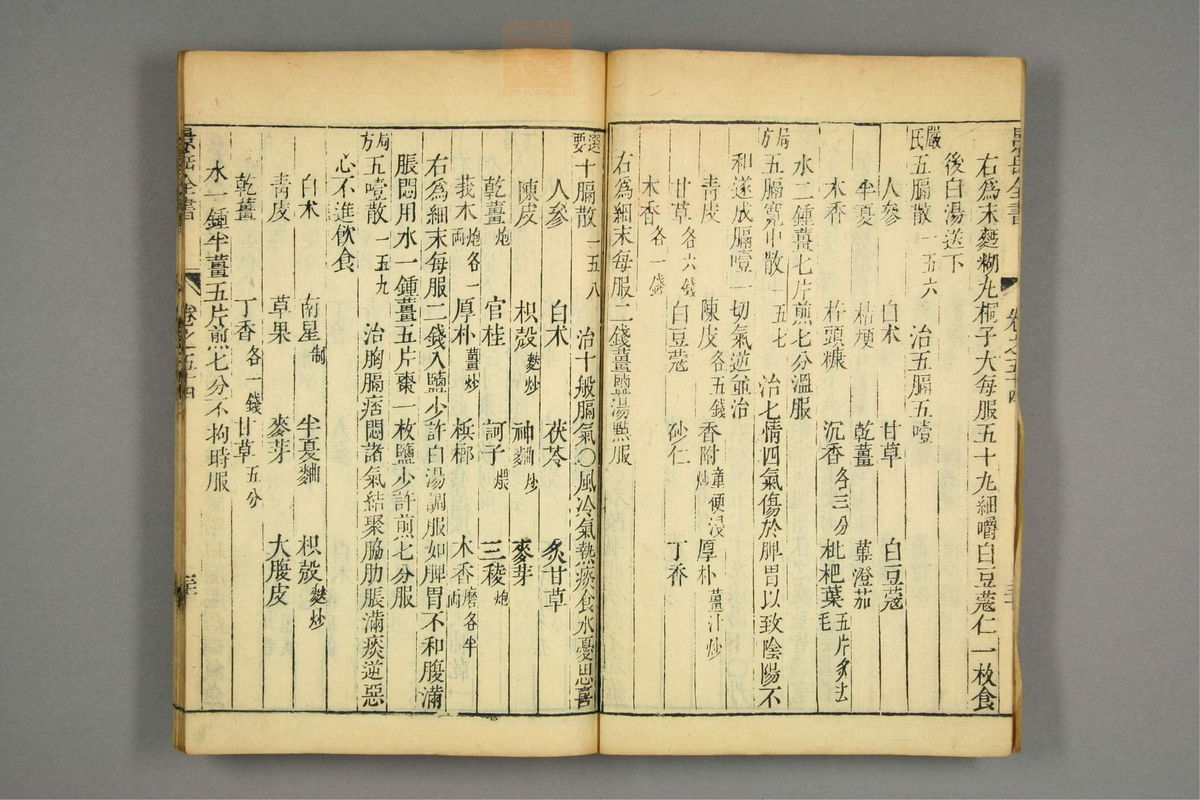 景岳全書 卷之五十四
右爲末麪糊丸桐子大每服五十丸細嚼白豆蔻仁一枚食
後白湯送下
嚴氏五膈散一五六 治五膈五噎
人參 白术 甘草 白豆蔻
半夏 桔梗 乾薑 蓽澄茄
木香 杵頭糠 沉香各三分 枇杷葉五片炙去毛
水二鍾薑七片煎七分溫服
局方五膈寬中散一五七 治七情四氣傷於脾胃以致陰陽不
和遂成膈噎一切氣逆並治
青皮 陳皮各五錢 香附童便浸炒 厚朴薑汁炒
甘草各六錢 白豆蔻 砂仁 丁香
木香各一錢
右爲細末每服二錢薑鹽湯點服
選要十膈散一五八 治十般膈氣〇風冷氣熱痰食水憂思喜
人參 白术 茯苓 炙甘草
陳皮 枳殼麩炒 神麯炒 麥芽
乾薑炮 官桂 訶子煨 三稜炮
莪术炮各一兩 厚朴薑炒 梹榔 木香磨各半兩
右爲細末每服二錢入鹽少許白湯調服如脾胃不和腹滿
脹悶用水一鍾薑五片棗一枚鹽少許煎七分服
局方五噎散一五九 治胸膈痞悶諸氣結聚脇肋脹滿痰逆惡
心不進飲食
白术 南星制 半夏麯 枳殼麩炒
青皮 草果 麥芽 大腹皮
乾薑 丁香各一錢 甘草五分
水一鍾半薑五片煎七分不拘時服
景岳全書 卷之五十四